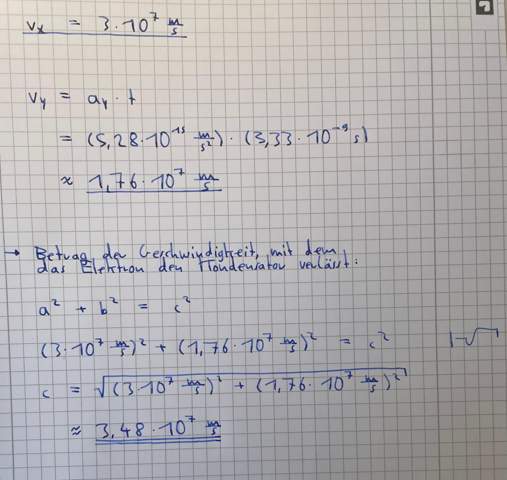 vₓ = 3·10⁷ m/s
v_y = a_y · t
= (5,28·10¹⁵ m/s²) · (3,33·10⁻⁹ s)
≈ 1,76·10⁷ m/s
→ Betrag der Geschwindigkeit, mit dem
das Elektron den Kondensator verlässt:
a² + b² = c²
(3·10⁷ m/s)² + (1,76·10⁷ m/s)² = c² |√
c = √((3·10⁷ m/s)² + (1,76·10⁷ m/s)²)
≈ 3,48·10⁷ m/s